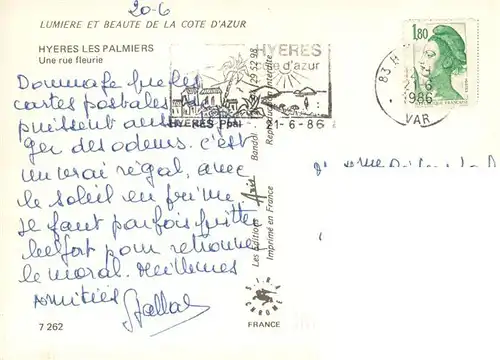 20-6
LUMIERE ET BEAUTE DE LA COTE D'AZUR
HYERES LES PALMIERS
Une rue fleurie
Dommage que les
cartes postales ne
puissent
ger des odeurs. c'est
un vrai régal, avec
le soleil en prime.
faut parfois quitter
belfort pour retrouver
le moral. meilleures
amitiés
7 262
HYERES
d'azur
HYERES Ppal
21-6-86
1,80
83
21-6
1986
VAR
Les éditions Aris Bandol 29 52 98
Imprimé en France Reproduction interdite
FRANCE